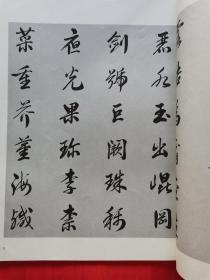 麗水玉出崐岡
劍號巨闕珠稱
夜光果珍李柰
菜重芥薑海鹹